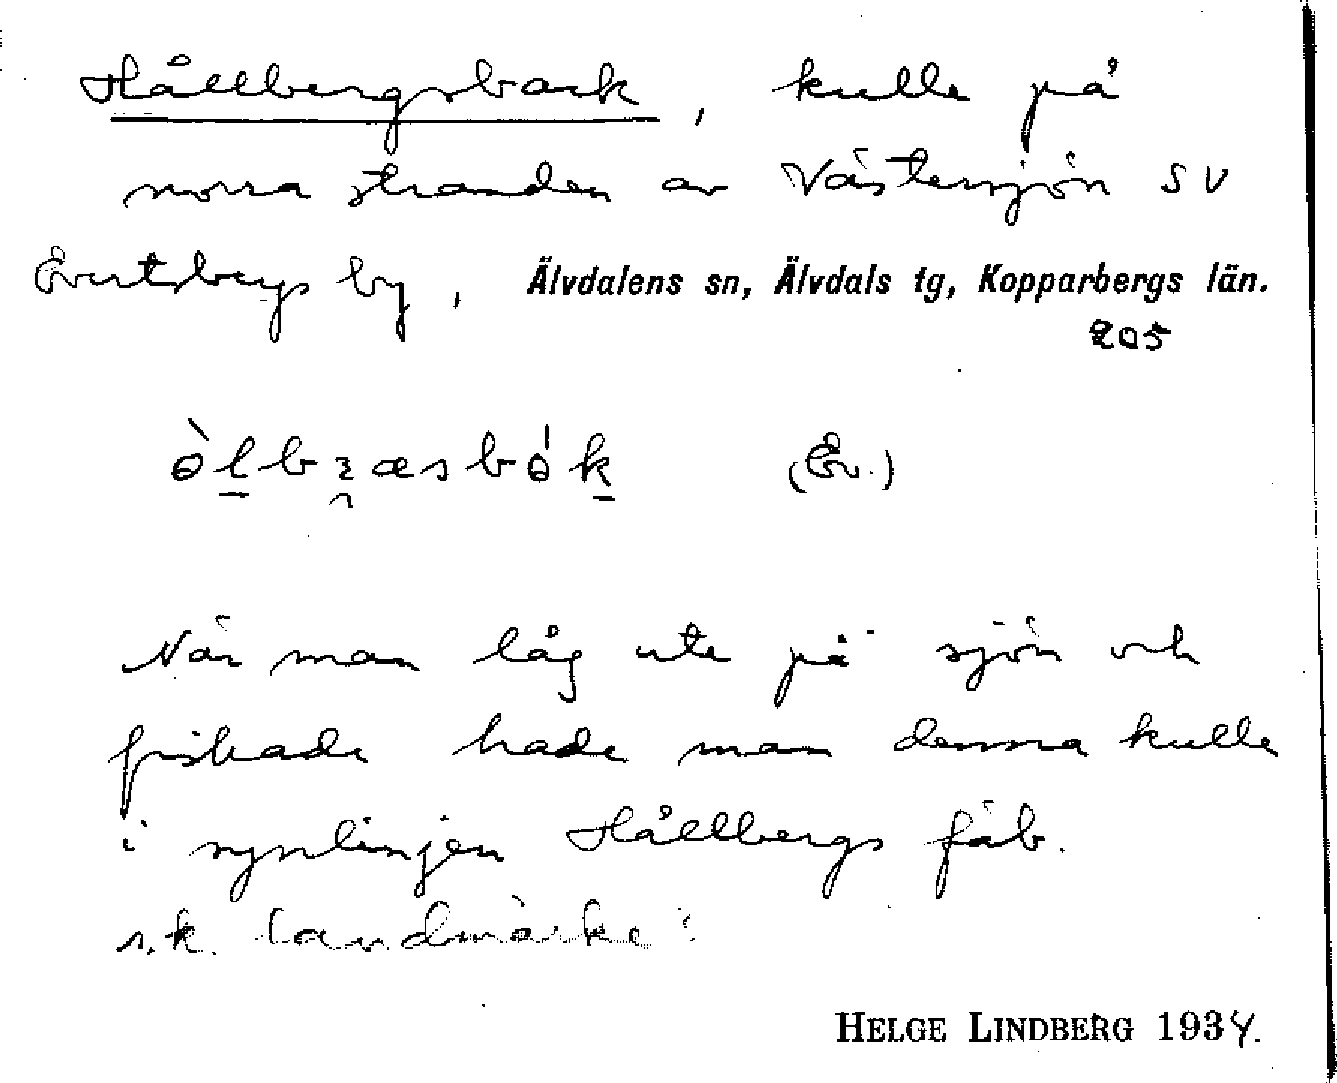 Hållbergsback, kulle på
norra stranden av Västersjön SV
Evertsbergs by, Älvdalens sn, Älvdals tg, Kopparbergs län.
205
(Ev.)
När man låg ute på sjön och
fiskade hade man denna kulle
i synlinjen Hållbergs fäb.
s.k. landmärke
HELGE LINDBERG 1934.